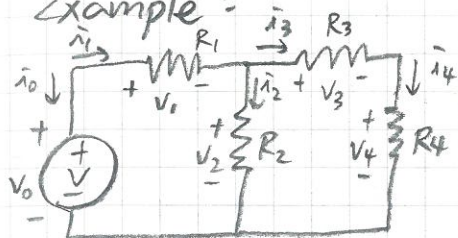 Example :
i₁ R₁ i₃ R₃
i₀ + V₁ - i₂ + V₃ - i₄
+ + V₂ - R₂ + V₄ - R₄
V₀ + V -
-